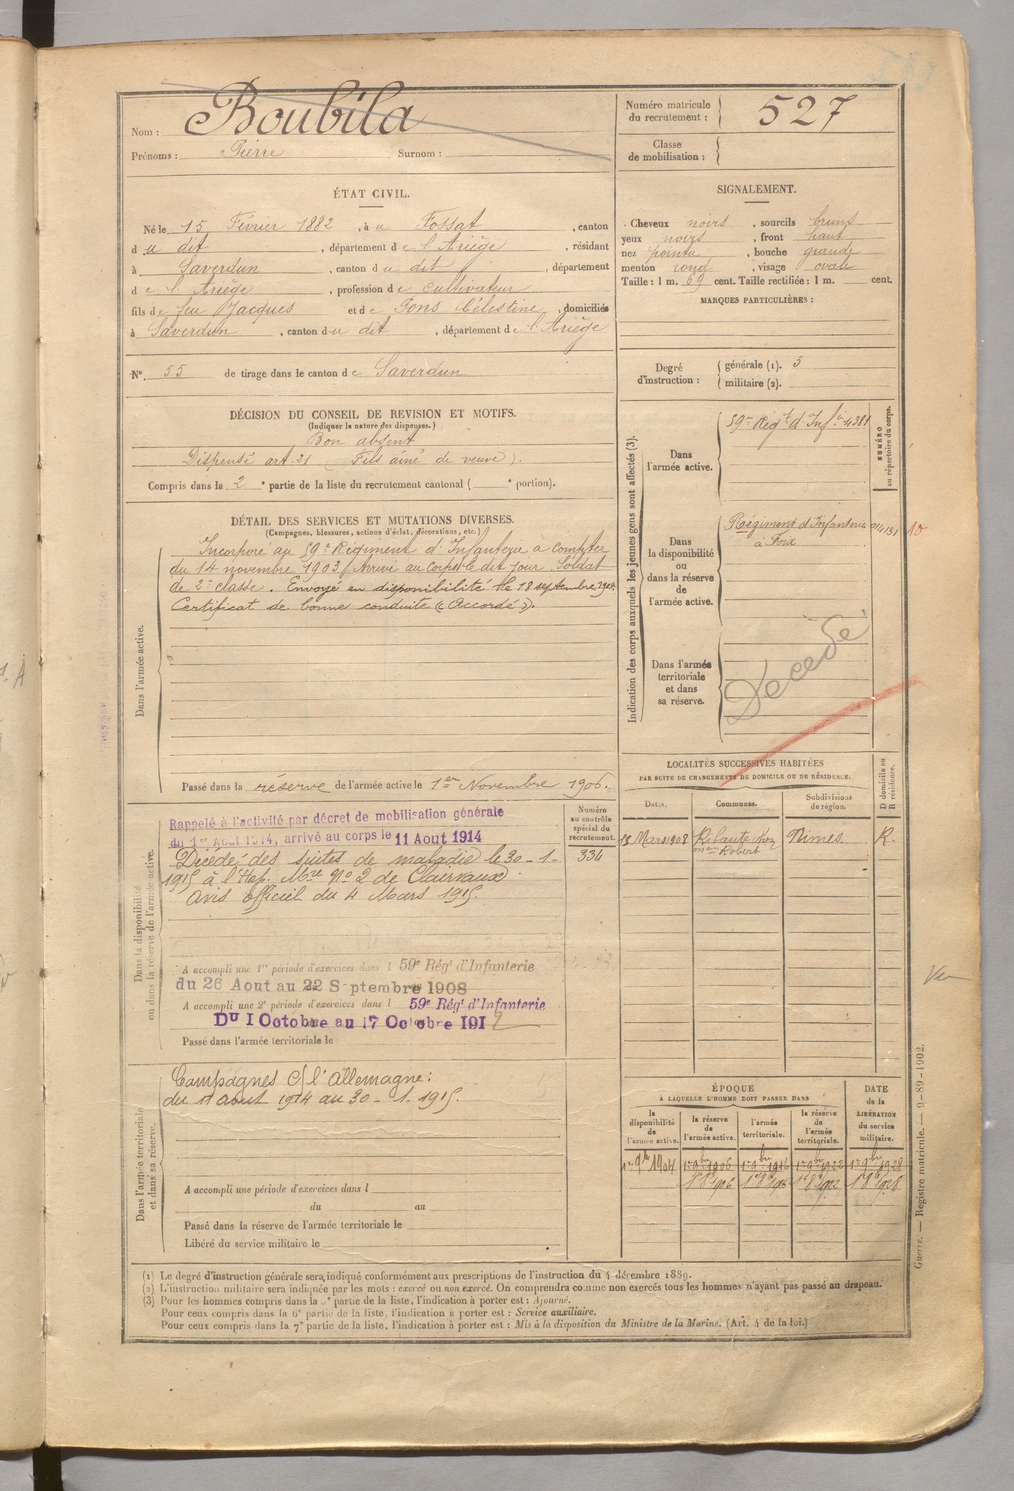 Nom : Boubila
Prénoms : Pierre Surnom :
Numéro matricule du recrutement : 527
Classe de mobilisation :
ÉTAT CIVIL.
Né le 15 Février 1882, à u Fossat, canton
d u dit, département d e l'Ariège, résidant
à Saverdun, canton d u dit, département
d e l'Ariège, profession de cultivateur
fils de feu Jacques et de Fons Célestine, domiciliés
à Saverdun, canton d u dit, département d e l'Ariège
N° 55 de tirage dans le canton d e Saverdun
SIGNALEMENT.
Cheveux noirs, sourcils bruns
yeux noirs, front haut
nez pointu, bouche grande
menton rond, visage ovale
Taille : 1 m. 69 cent. Taille rectifiée : 1 m. cent.
MARQUES PARTICULIÈRES :
Degré d'instruction : générale (1). 3
militaire (2).
DÉCISION DU CONSEIL DE REVISION ET MOTIFS.
(Indiquer la nature des dispenses.)
Bon absent
Dispensé art. 21 (Fils aîné de veuve).
Compris dans la 2e partie de la liste du recrutement cantonal ( e portion).
DÉTAIL DES SERVICES ET MUTATIONS DIVERSES.
(Campagnes, blessures, actions d'éclat, décorations, etc.)
Dans l'armée active.
Incorporé au 59e Régiment d'Infanterie à compter
du 14 novembre 1903. Arrivé au corps le dit jour. Soldat
de 2e classe. Envoyé en disponibilité le 18 septembre 1904.
Certificat de bonne conduite « Accordé ».
Passé dans la réserve de l'armée active le 1er Novembre 1906.
Indication des corps auxquels les jeunes gens sont affectés (3).
NUMÉRO au répertoire du corps.
Dans l'armée active.
59e Régt d'Infie 4381
Dans la disponibilité ou dans la réserve de l'armée active.
Régiment d'Infanterie
à Foix
10
Dans l'armée territoriale et dans sa réserve.
Décédé
Dans la disponibilité ou dans la réserve de l'armée active.
Numéro au contrôle spécial du recrutement.
334
Rappelé à l'activité par décret de mobilisation générale
du 1er Aout 1914, arrivé au corps le 11 Aout 1914
Décédé des suites de maladie le 30-1-
1915 à l'Hop. Mre No 2 de Clairvaux.
Avis officiel du 4 Mars 1915.
A accompli une 1re période d'exercices dans l 59e Régt d'Infanterie
du 26 Aout au 22 Septembre 1908
A accompli une 2e période d'exercices dans l 59e Régt d'Infanterie
Du 1 Octobre au 17 Octobre 1912
Passé dans l'armée territoriale le
LOCALITÉS SUCCESSIVES HABITÉES
PAR SUITE DE CHANGEMENTS DE DOMICILE OU DE RÉSIDENCE.
Dates. Communes. Subdivisions de région. D domicile ou R résidence.
13 Mars 1908 Ribaute chez Nîmes. R.
Mme Robert
Dans l'armée territoriale et dans sa réserve.
Campagnes c/ l'Allemagne :
du 11 aout 1914 au 30-1-1915.
A accompli une période d'exercices dans l
du au
Passé dans la réserve de l'armée territoriale le
Libéré du service militaire le
ÉPOQUE
À LAQUELLE L'HOMME DOIT PASSER DANS
la disponibilité de l'armée active. la réserve de l'armée active. l'armée territoriale. la réserve de l'armée territoriale. DATE de la LIBÉRATION du service militaire.
1er 9bre 1904 1er 9bre 1906 1er 9bre 1916 1er 9bre 1922 1er 9bre 1928
Guerre. — Registre matricule. — 9-89-1902.
(1) Le degré d'instruction générale sera indiqué conformément aux prescriptions de l'instruction du 4 décembre 1889.
(2) L'instruction militaire sera indiquée par les mots : exercé ou non exercé. On comprendra comme non exercés tous les hommes n'ayant pas passé au drapeau.
(3) Pour les hommes compris dans la 5e partie de la liste, l'indication à porter est : Ajourné.
Pour ceux compris dans la 6e partie de la liste, l'indication à porter est : Service auxiliaire.
Pour ceux compris dans la 7e partie de la liste, l'indication à porter est : Mis à la disposition du Ministre de la Marine. (Art. 4 de la loi.)